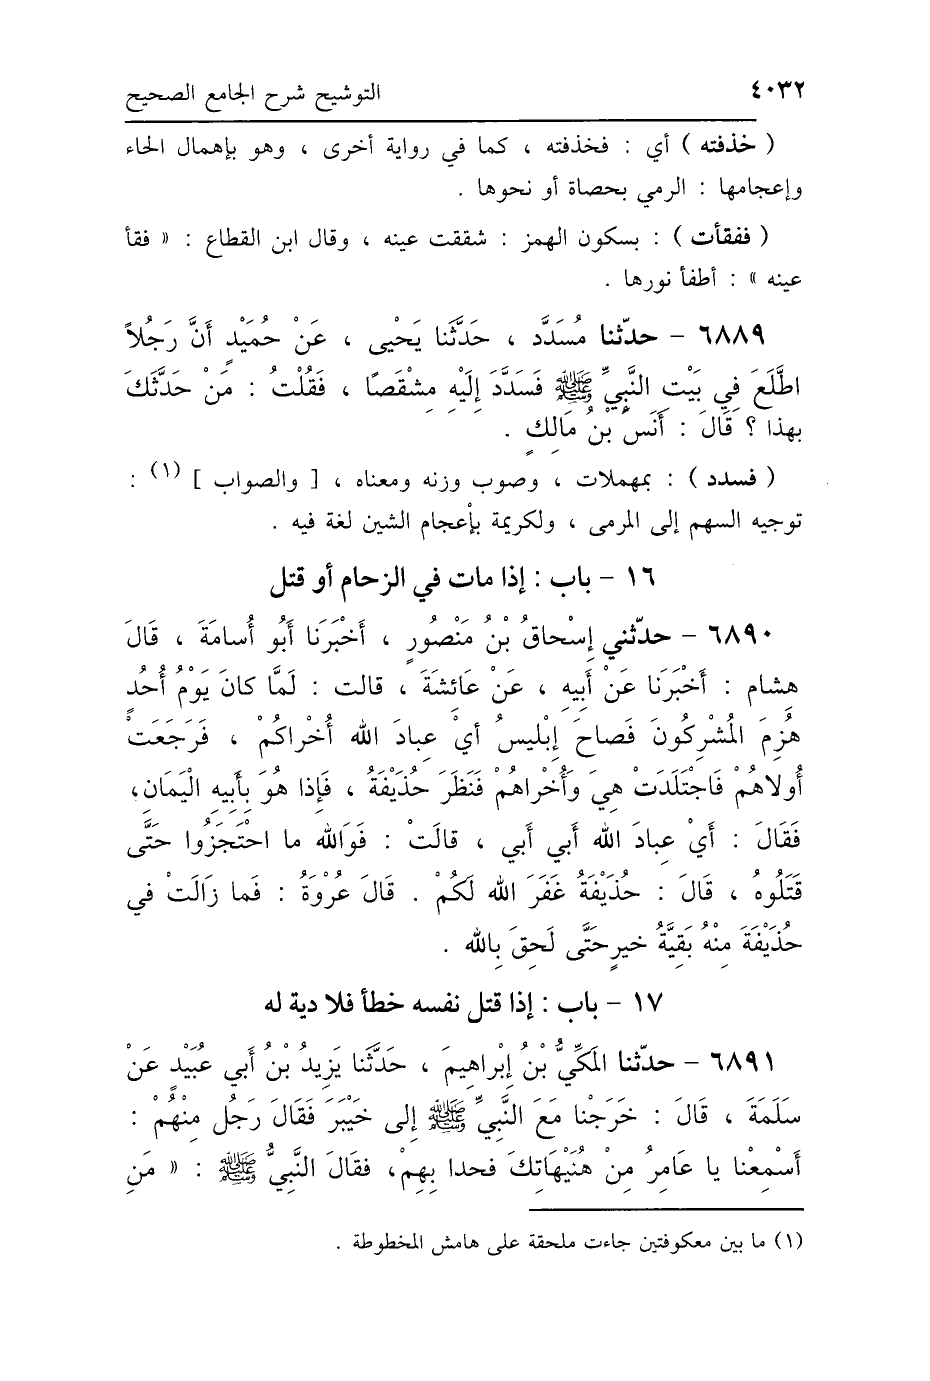 ٤٠٣٢ التوشيح شرح الجامع الصحيح
( خذفته ) أي : فخذفته ، كما في رواية أخرى ، وهو بإهمال الحاء
وإعجامها : الرمي بحصاة أو نحوها .
( ففقأت ) : بسكون الهمز : شققت عينه ، وقال ابن القطاع : « فقأ
عينه » : أطفأ نورها .
٦٨٨٩ – حدّثنا مُسَدَّد ، حَدَّثَنا يَحْيى ، عَنْ حُمَيْدٍ أَنَّ رَجُلاً
اطَّلَعَ فِي بَيْتِ النَّبِيِّ ﷺ فَسَدَّدَ إِلَيْهِ مِشْقَصًا ، فَقُلْتُ : مَنْ حَدَّثَكَ
بِهذا ؟ قَالَ : أَنَسُ بْنُ مَالِكٍ .
( فسدد ) : بمهملات ، وصوب وزنه ومعناه ، [ والصواب ] (١) :
توجيه السهم إلى المرمى ، ولكريمة بإعجام الشين لغة فيه .
١٦ – باب : إذا مات في الزحام أو قتل
٦٨٩٠ – حدّثني إِسْحاقُ بْنُ مَنْصُورٍ ، أَخْبَرَنا أَبُو أُسامَةَ ، قَالَ
هِشام : أَخْبَرَنَا عَنْ أَبِيهِ ، عَنْ عَائِشَةَ ، قالت : لَمَّا كانَ يَوْمُ أُحُدٍ
هُزِمَ الْمُشْرِكُونَ فَصاحَ إِبْلِيسُ أيْ عِبادَ الله أُخْراكُمْ ، فَرَجَعَتْ
أُولاهُمْ فَاجْتَلَدَتْ هِيَ وَأُخْراهُمْ فَنَظَرَ حُذَيْفَةُ ، فَإِذا هُوَ بِأَبِيهِ الْيَمَانِ،
فَقَالَ : أَيْ عِبادَ الله أَبي أَبي ، قالَتْ : فَوَالله ما احْتَجَزُوا حَتَّى
قَتَلُوهُ ، قَالَ : حُذَيْفَةُ غَفَرَ الله لَكُمْ . قَالَ عُرْوَةُ : فَما زَالَتْ في
حُذَيْفَةَ مِنْهُ بَقِيَّةُ خيرٍ حَتَّى لَحِقَ بِالله .
١٧ – باب : إذا قتل نفسه خطأ فلا دية له
٦٨٩١ – حدّثنا المَكِّيُّ بْنُ إِبْراهِيمَ ، حَدَّثَنا يَزِيدُ بْنُ أَبي عُبَيْدٍ عَنْ
سَلَمَةَ ، قَالَ : خَرَجْنا مَعَ النَّبِيِّ ﷺ إلى خَيْبَرَ فَقَالَ رَجُل مِنْهُمْ :
أَسْمِعْنا يا عَامِرُ مِنْ هُنَيْهَاتِكَ فَحدا بِهِمْ، فقَالَ النَّبِيُّ ﷺ : « مَنِ
(١) ما بين معكوفتين جاءت ملحقة على هامش المخطوطة .